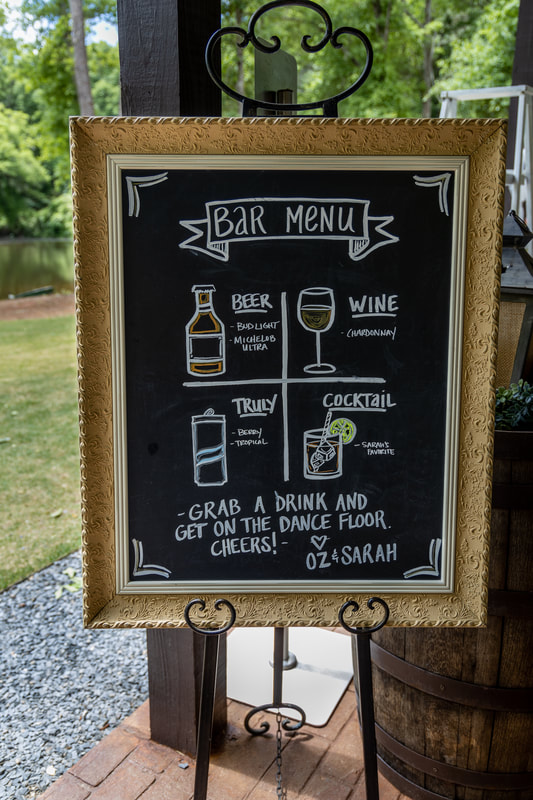 BAR MENU
BEER
- BUD LIGHT
- MICHELOB
ULTRA
WINE
- CHARDONNAY
TRULY
- BERRY
- TROPICAL
COCKTAIL
- SARAH'S
FAVORITE
- GRAB A DRINK AND
GET ON THE DANCE FLOOR.
CHEERS! -
♡
OZ & SARAH